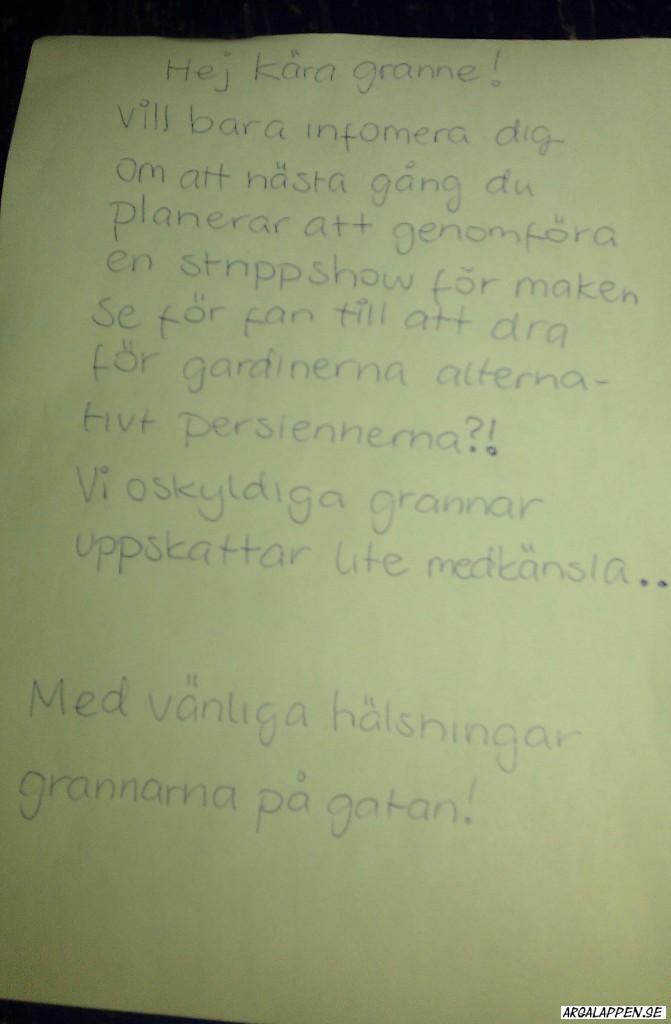 Hej kära granne!
vill bara infomera dig
om att nästa gång du
planerar att genomföra
en strippshow för maken
se för fan till att dra
för gardinerna alterna-
tivt persiennerna?!
Vi oskyldiga grannar
uppskattar lite medkänsla..
Med vänliga hälsningar
grannarna på gatan!
ARGALAPPEN.SE